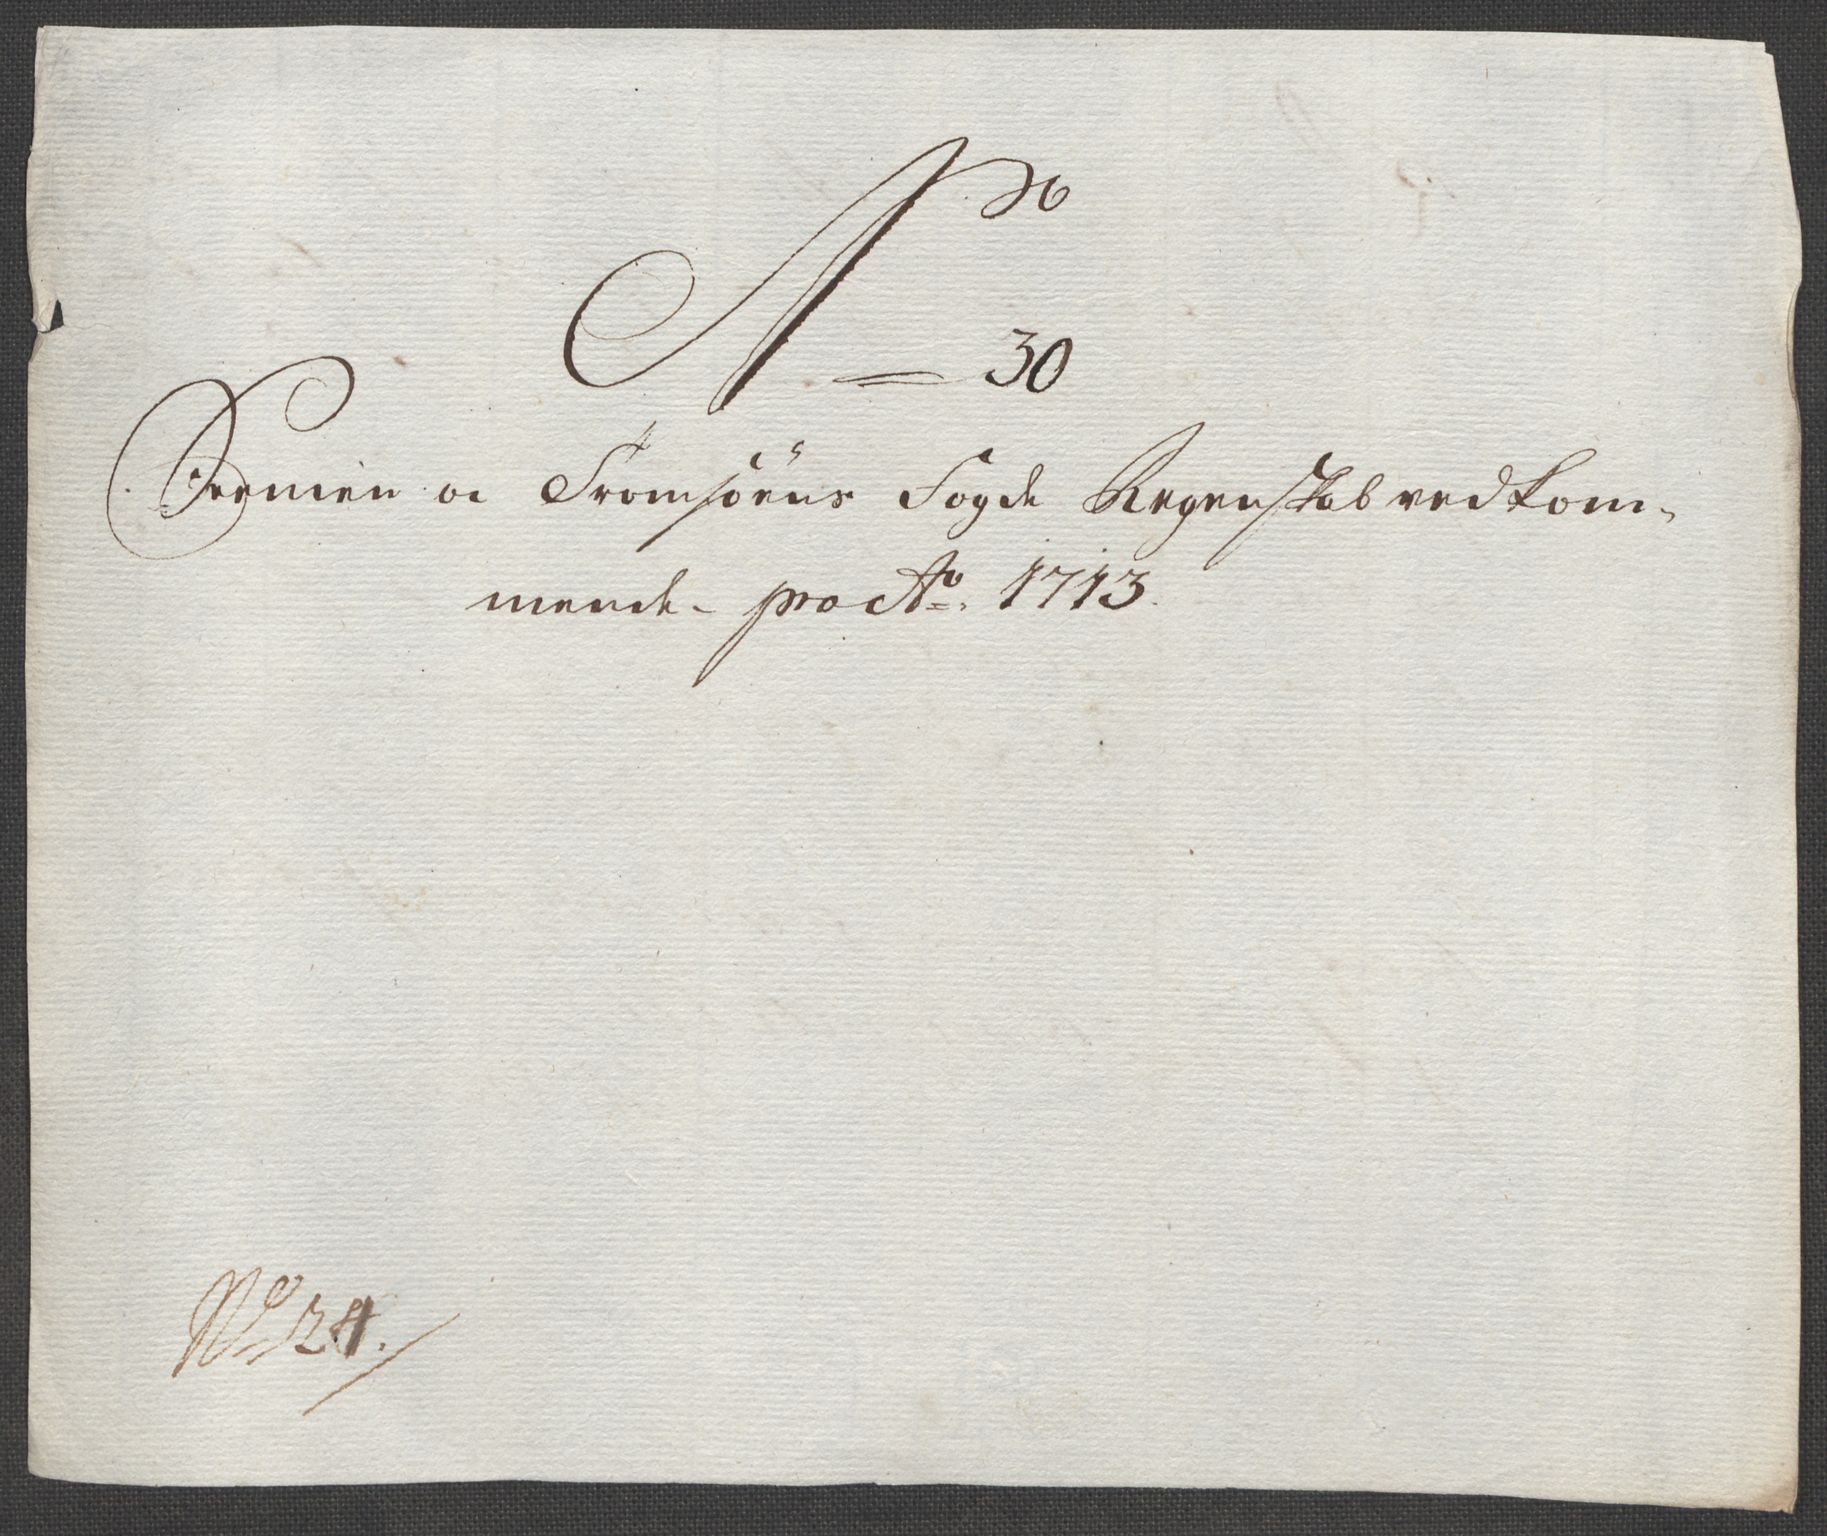 No
30
Senniens oc Tromsøens Fogde Regenskab vedkom-
mende pro Ao. 1713.
No 24.